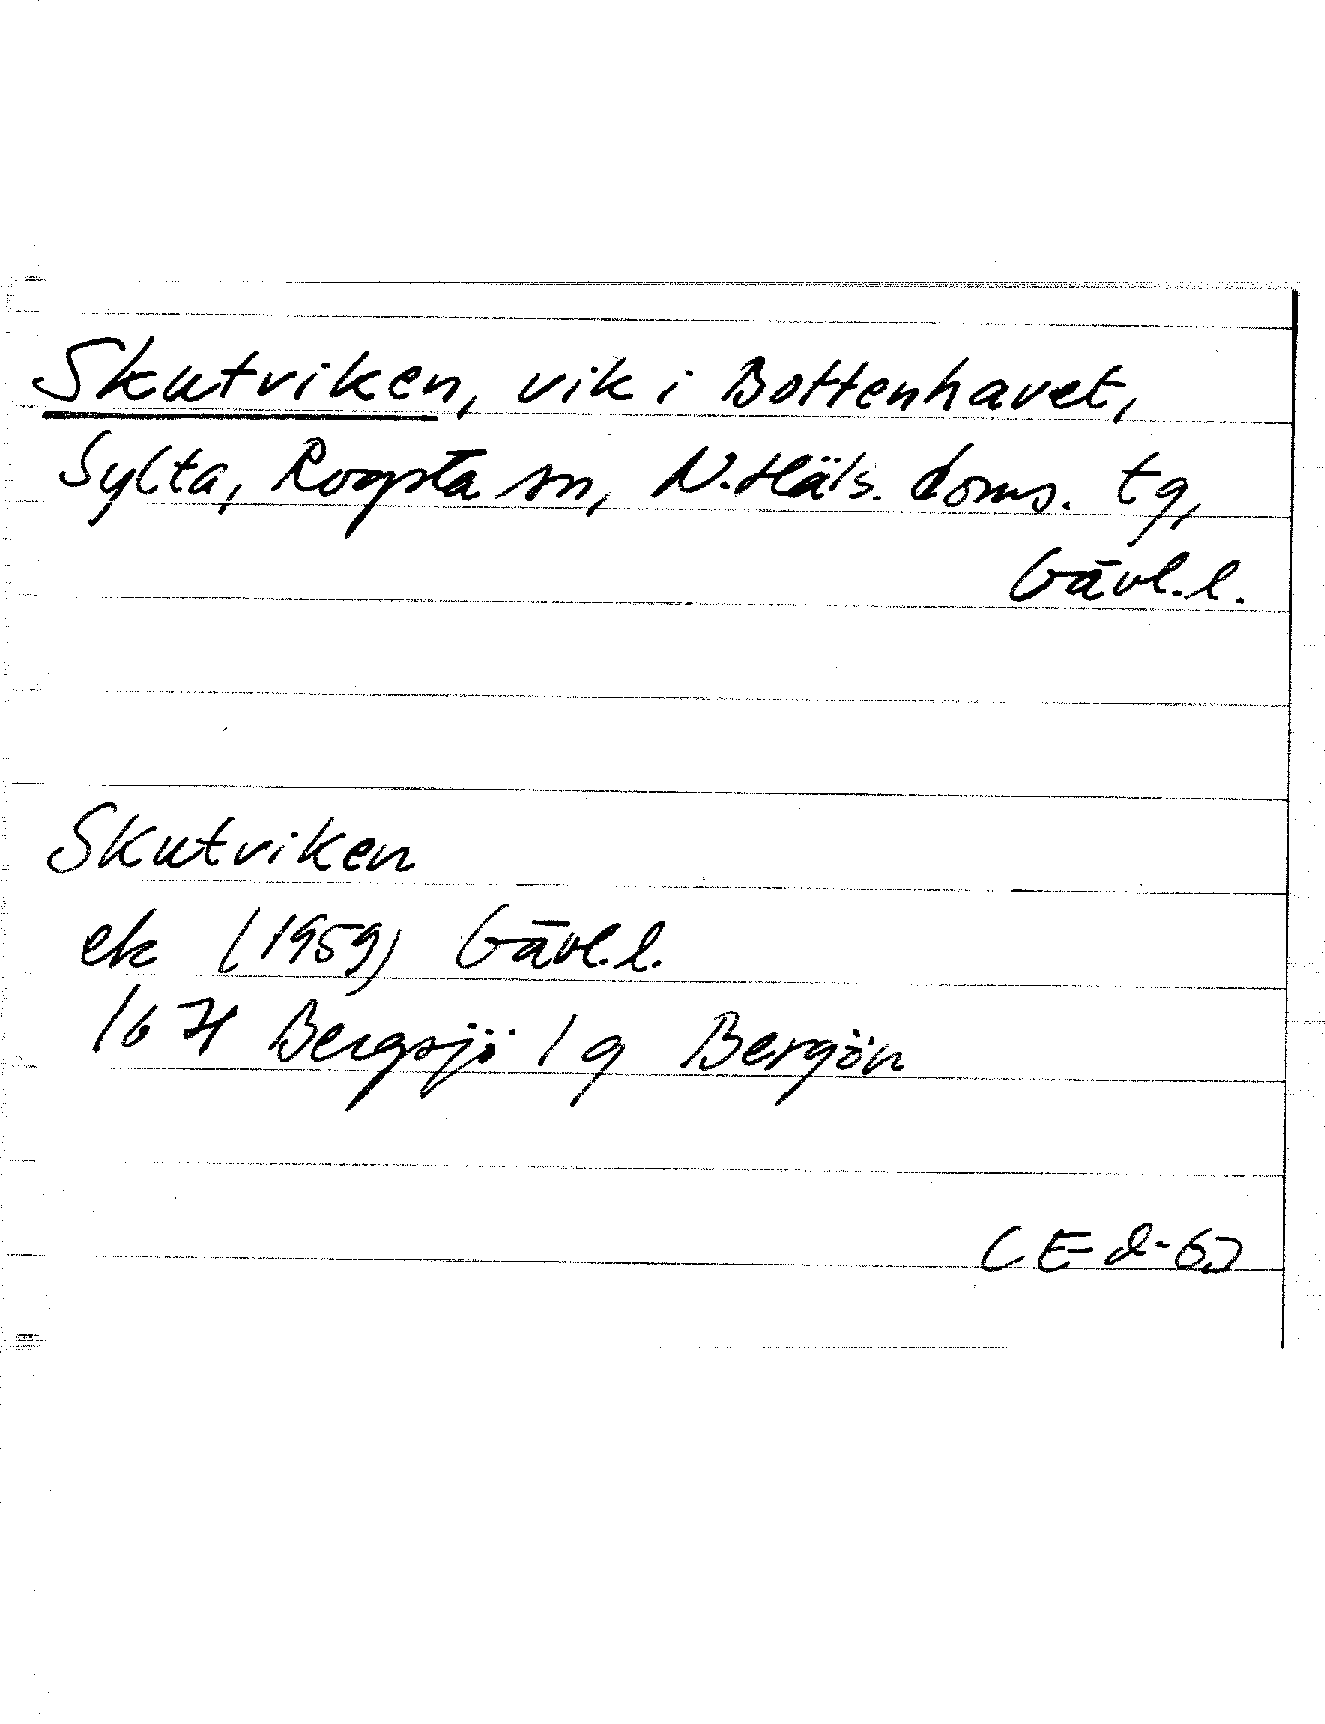 Skutviken, vik i Bottenhavet,
Sylta, Rogsta sn, N. Häls. doms. tg,
Gävl.l.
Skutviken
ek (1959) Gävl.l.
16 H Bergsjö 1 g Bergön